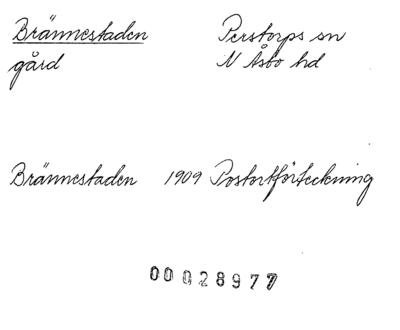 Brännestaden Perstorps sn
gård N Åsbo hd
Brännestaden 1909 Postortförteckning
00028977